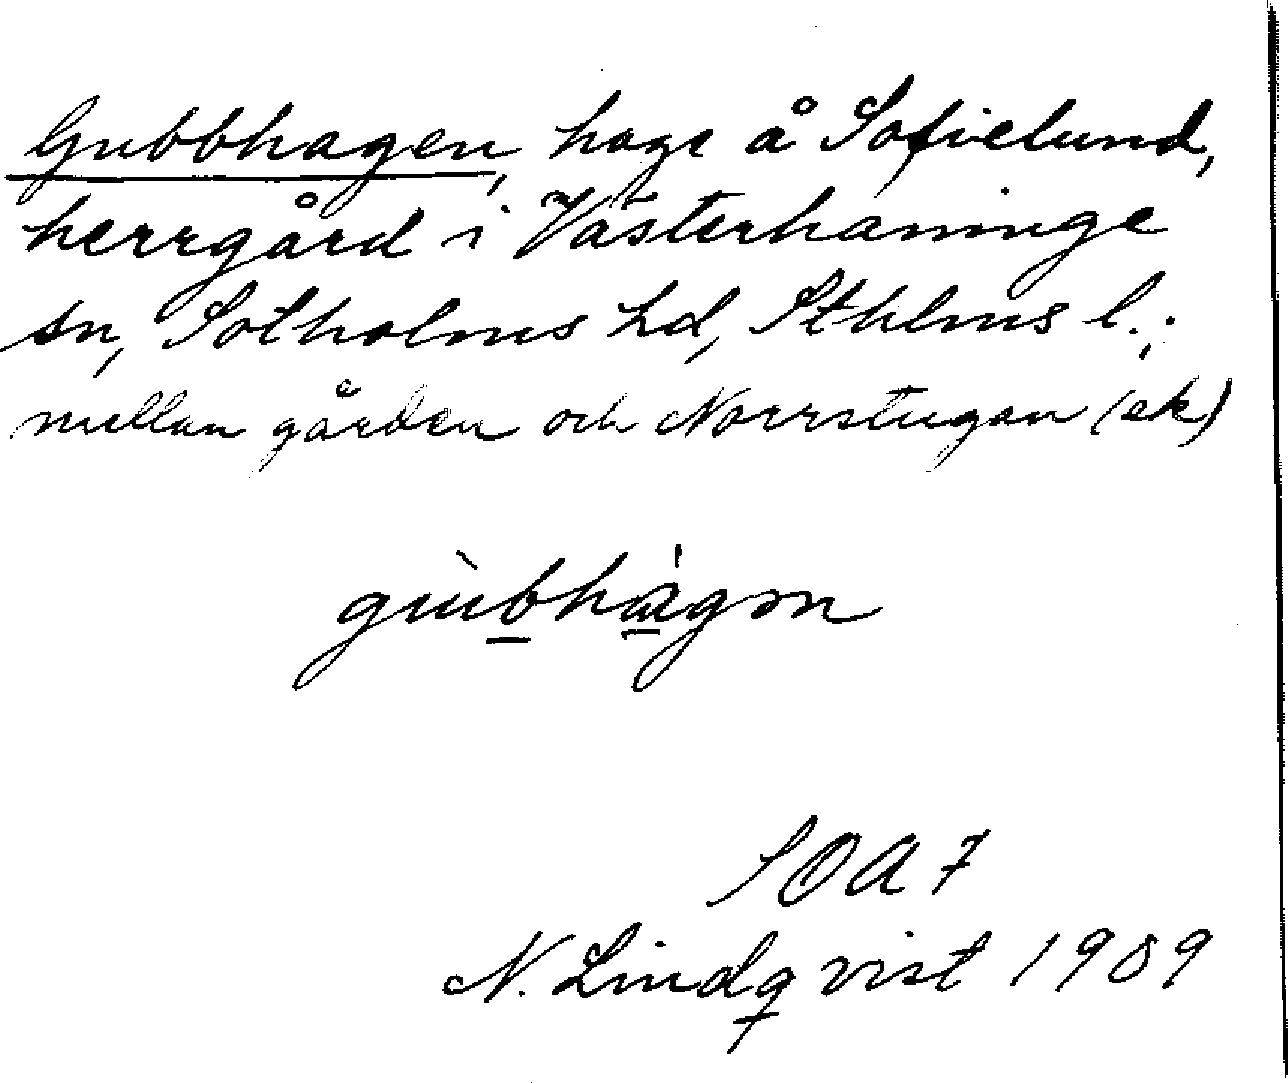 Gubbhagen, hage å Sofielund,
herrgård i Västerhaninge
sn, Sotholms hd, Sthlms l.;
mellan gården och Norrstugan (ek)
gùbhágən
SOA 7
N. Lindqvist 1909